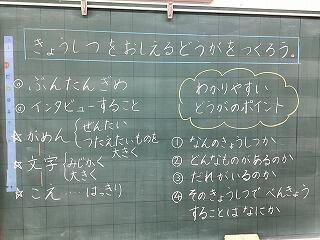 きょうしつをおしえるどうがをつくろう。
◎ ぶんたんぎめ
◎ インタビューすること
☆ がめん ぜんたい
つたえたいものを
大きく
☆ 文字 みじかく
大きく
☆ こえ …… はっきり
わかりやすい
どうがのポイント
① なんのきょうしつか
② どんなものがあるのか
③ だれがいるのか
④ そのきょうしつで べんきょう
することは なにか